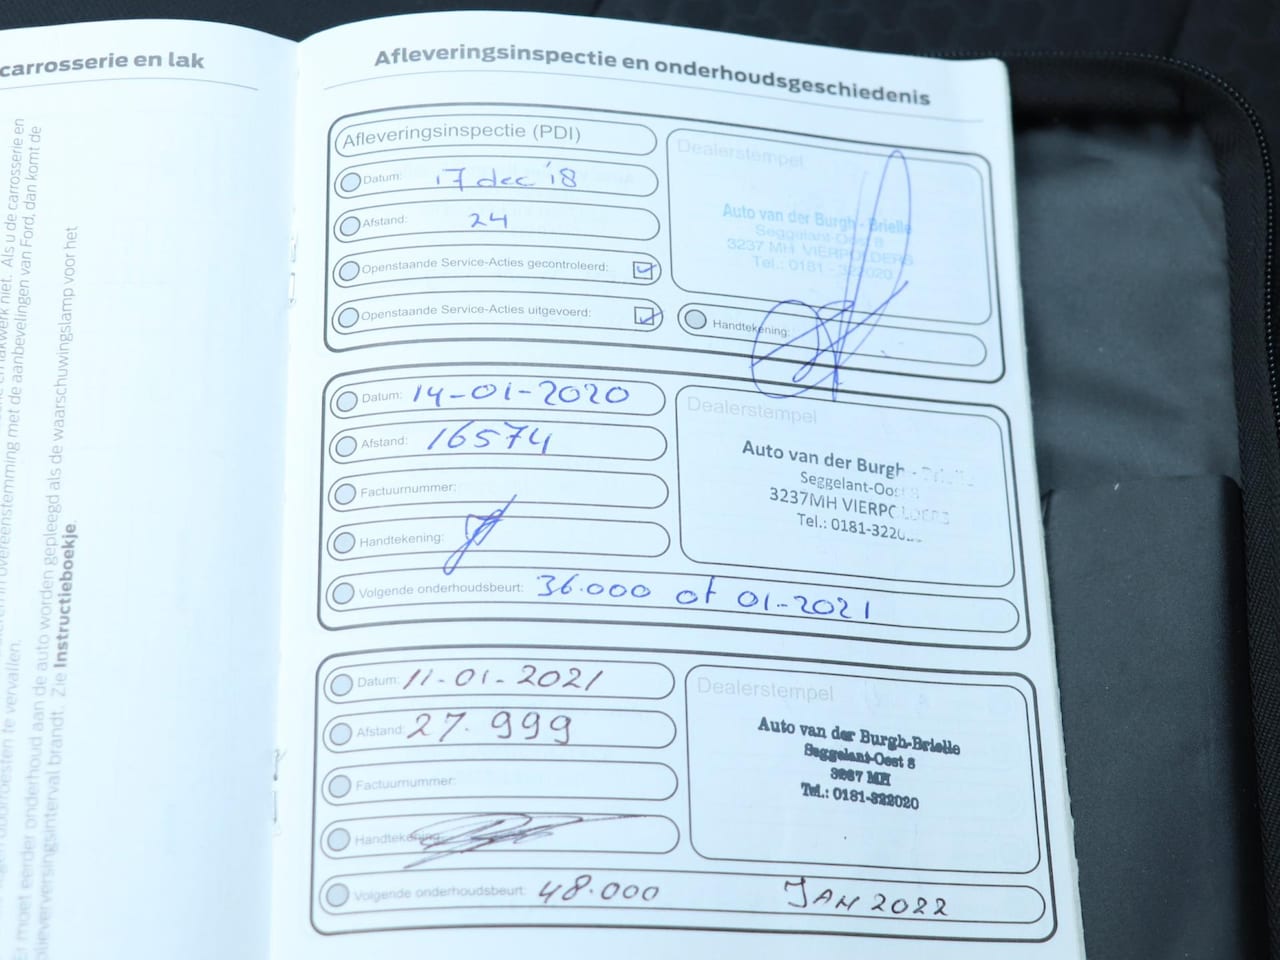 carrosserie en lak
lakwerk niet. Als u de carrosserie en
overeenstemming met de aanbevelingen van Ford, dan komt de
doorroesten te vervallen.
Er moet eerder onderhoud aan de auto worden gepleegd als de waarschuwingslamp voor het
olieverversingsinterval brandt. Zie Instructieboekje.
Afleveringsinspectie en onderhoudsgeschiedenis
Afleveringsinspectie (PDI)
Datum: 17 dec '18
Afstand: 24
Openstaande Service-Acties gecontroleerd:
Openstaande Service-Acties uitgevoerd:
Dealerstempel
Auto van der Burgh - Brielle
Seggelant-Oost 8
3237 MH VIERPOLDERS
Tel.: 0181 - 322020
Handtekening:
Datum: 14-01-2020
Afstand: 16574
Factuurnummer:
Handtekening:
Dealerstempel
Auto van der Burgh - Brielle
Seggelant-Oost 8
3237MH VIERPOLDERS
Tel.: 0181-322
Volgende onderhoudsbeurt: 36.000 of 01-2021
Datum: 11-01-2021
Afstand: 27.999
Factuurnummer:
Handtekening:
Dealerstempel
Auto van der Burgh-Brielle
Seggelant-Oost 8
3237 MH
Tel.: 0181-322020
Volgende onderhoudsbeurt: 48.000 JAN 2022